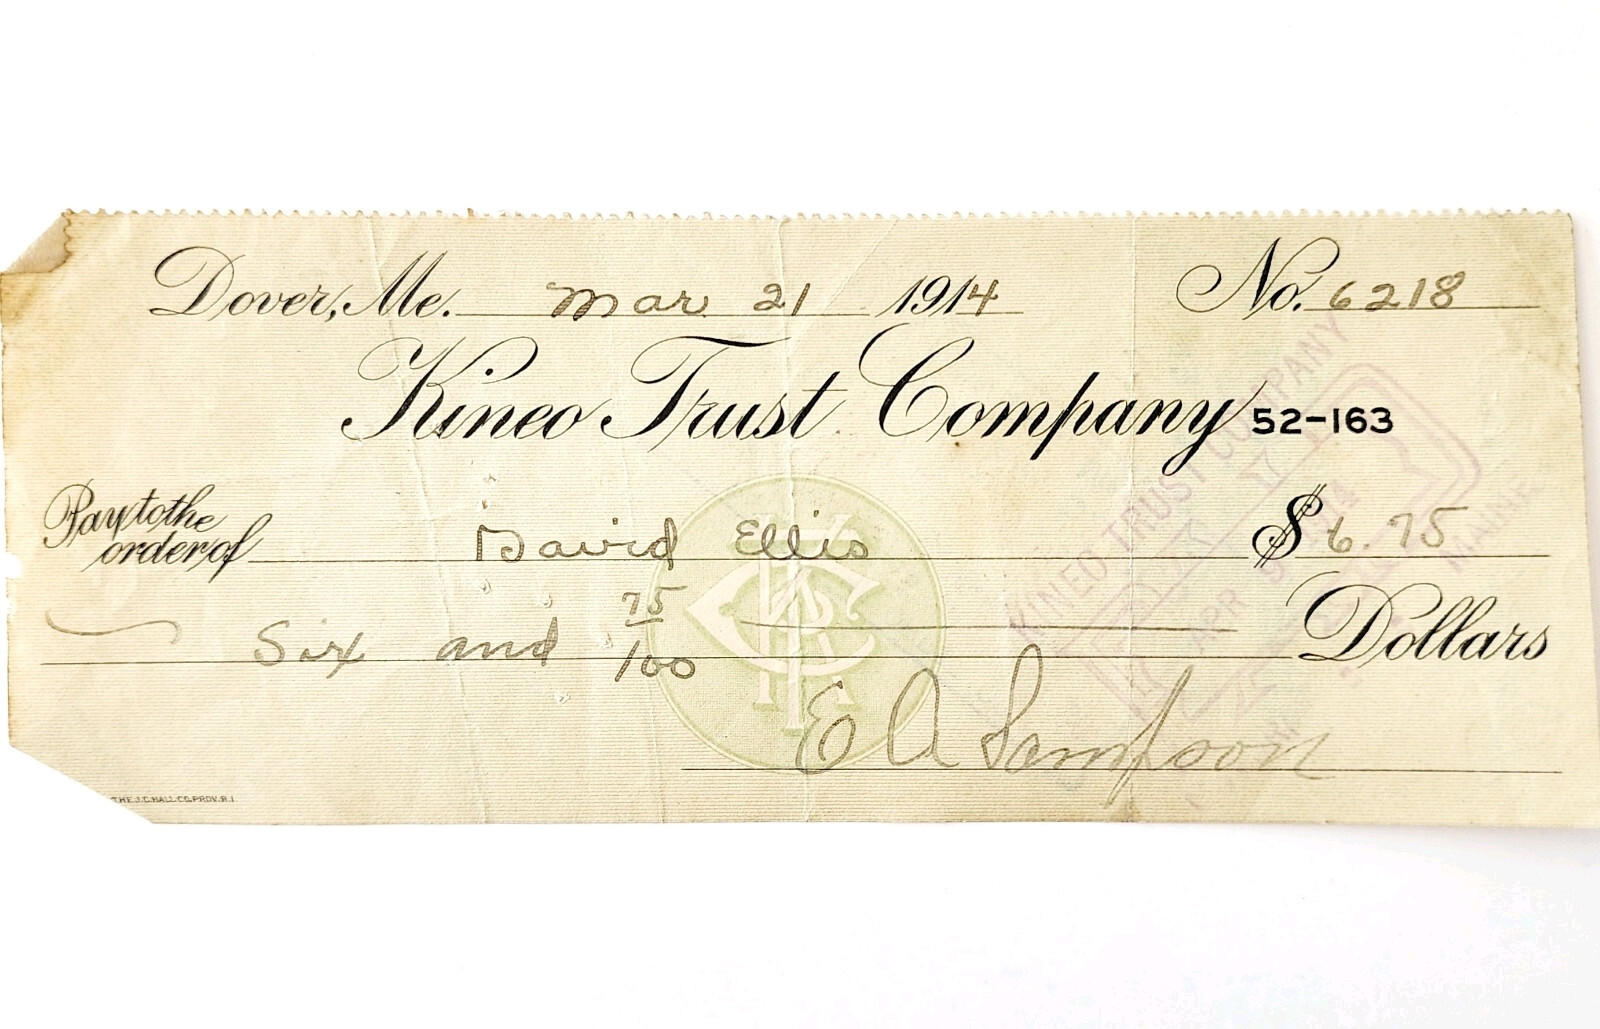 Dover, Me. Mar 21 1914 No. 6218
Kineo Trust Company 52-163
Pay to the order of David Ellis $ 6.75
Six and 75/100 Dollars
E A Sampson
THE J.C. HALL CO. PROV. R.I.
KINEO TRUST COMPANY
PAID
APR 5 1914
MAINE